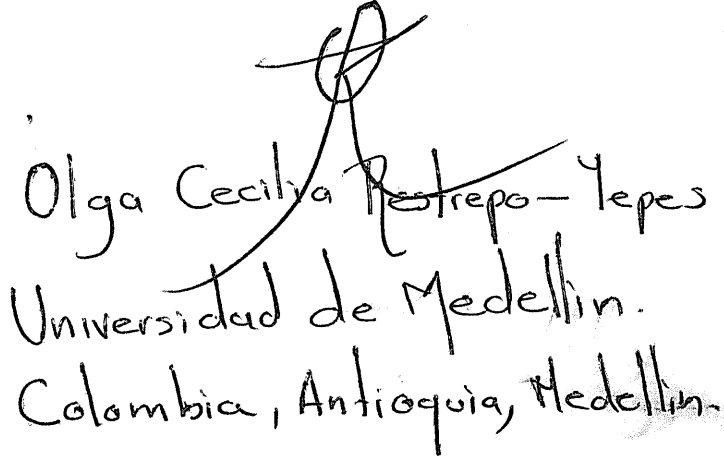 Olga Cecilia Restrepo-Yepes
Universidad de Medellin.
Colombia, Antioquia, Medellin.